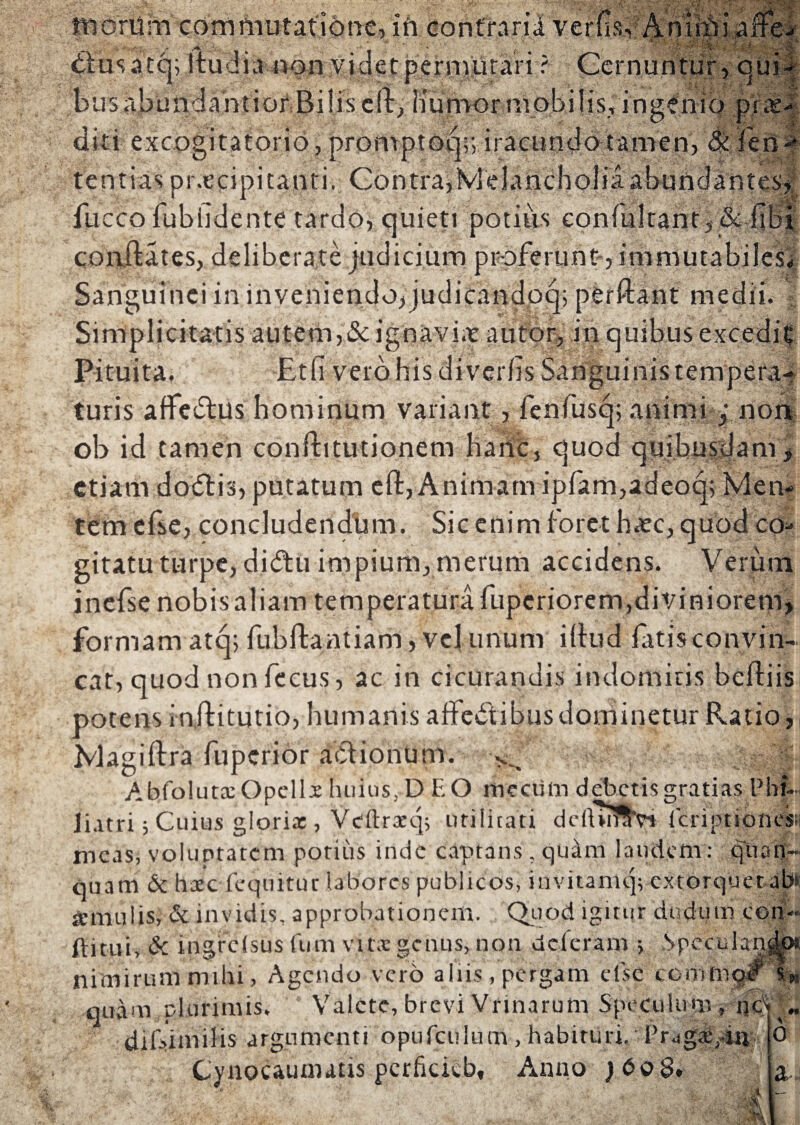 morum commutatione, in contrariâ versis, Animi affe-
ctus atq; studia non videt permutari? Cernuntur, qui-
bus abundantior Bilis est, humor mobilis, ingenio præ-
diti excogitatorio, promptoq;; iracundo tamen, & sen-
tentias præcipitanti. Contra, Melancholiâ abundantes,
succo subsidente tardo, quieti potiùs consultant, & sibi
constãtes, deliberatè judicium proferunt, immutabiles.
Sanguinei in inveniendo, judicandoq; perstant medii.
Simplicitatis autem, & ignaviæ autor, in quibus excedit
Pituita. Etsi verò his diversis Sanguinis tempera-
turis affectus hominum variant, sensusq; animi; non
ob id tamen constitutionem hanc, quod quibusdam,
etiam doctis, putatum est, Animam ipsam, adeoq; Men-
tem esse, concludendum. Sic enim foret hæc, quod co-
gitatu turpe, dictu impium, merum accidens. Verùm
inesse nobis aliam temperaturâ superiorem, diviniorem,
formam atq; substantiam, vel unum illud satis convin-
cat, quod non secus, ac in cicurandis indomitis bestiis
potens institutio, humanis affectibus dominetur Ratio,
Magistra superior actionum.
Absolutæ Opellæ huius, DEO mecum debetis gratias Phi-
liatri; Cuius gloriæ, Vestræq; utilitati destinavi scriptiones
meas, voluptatem potiùs inde captans, quàm laudem: quan-
quam & hæc sequitur labores publicos, invitamq; extorquet ab
æmulis, & invidis, approbationem. Quod igitur dudum con-
stitui, & ingressus sum vitæ genus, non deseram; Speculando
nimirum mihi, Agendo verò aliis, pergam esse
quàm plurimis. Valete, brevi Vrinarum Speculum,
dissimilis argumenti opusculum, habituri. Pragæ, in
Cynocaumatis perficieb, Anno 1608.